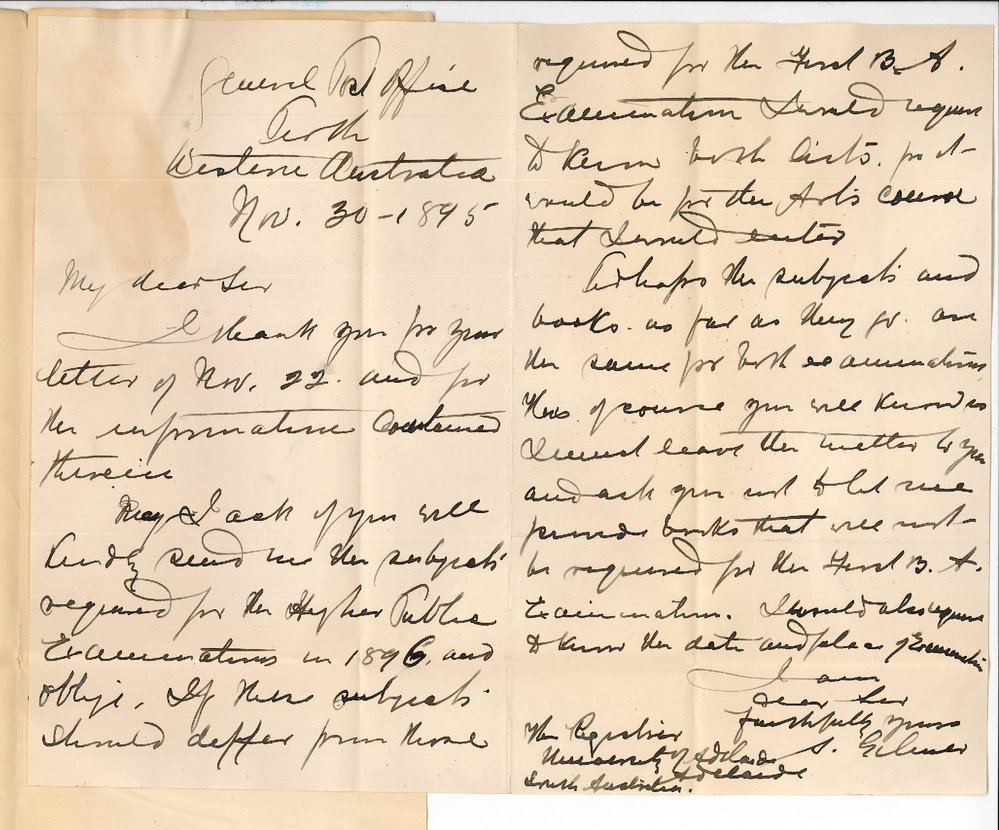 General Post Office
Perth
Western Australia
Nov. 30 - 1895
My dear Sir
I thank you for your
letter of Nov. 22. and for
the information contained
therein
May I ask if you will
kindly send me the subjects
required for the Higher Public
Examinations in 1896, and
oblige. If these subjects
should differ from those
required for the First B. A.
Examination I would require
to know both lists. for it
would be for the Arts course
that I would enter
Perhaps the subjects and
books. as far as they go. are
the same for both examinations
this of course you will know so
I must leave the matter to you
and ask you not to let me
provide books that will not
be required for the First B. A.
Examination. I would also require
to know the date and place of Examination
I am
Dear Sir
faithfully yours
S. Gilmer
The Registrar
University of Adelaide
Adelaide
South Australia.